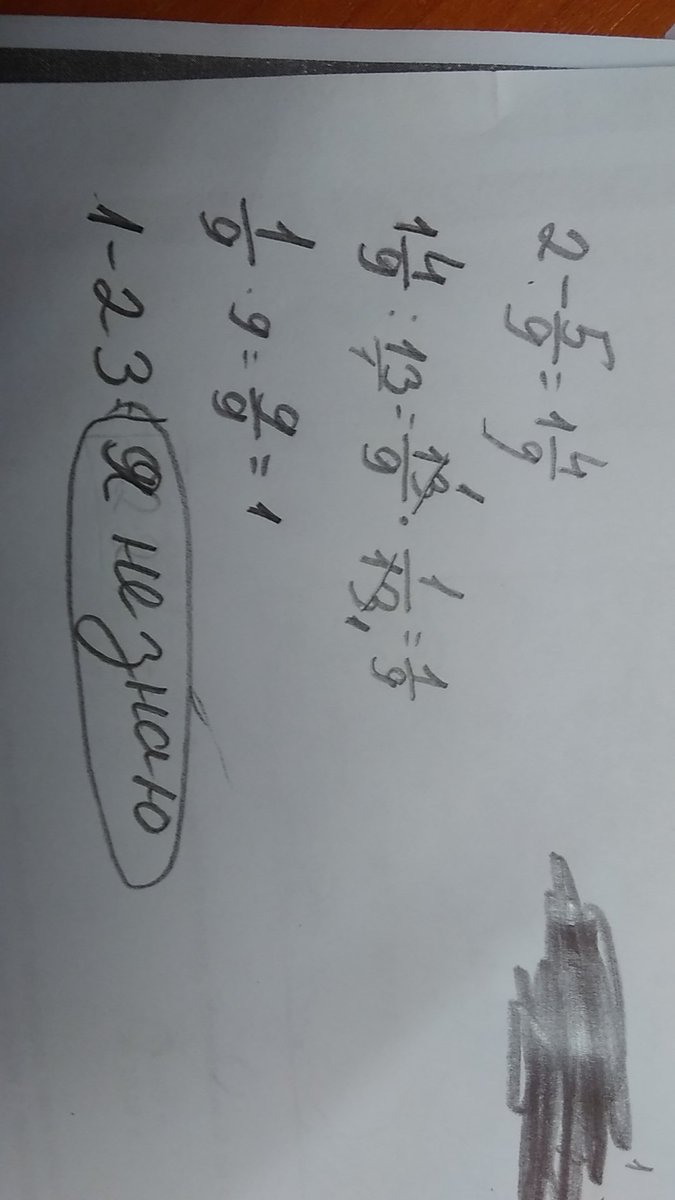 2 - 5/9 = 1 4/9
1 4/9 : 13/1 = 13/9 · 1/13 = 1/9
1/9 · 9 = 9/9 = 1
1 - 23 = я не знаю
1